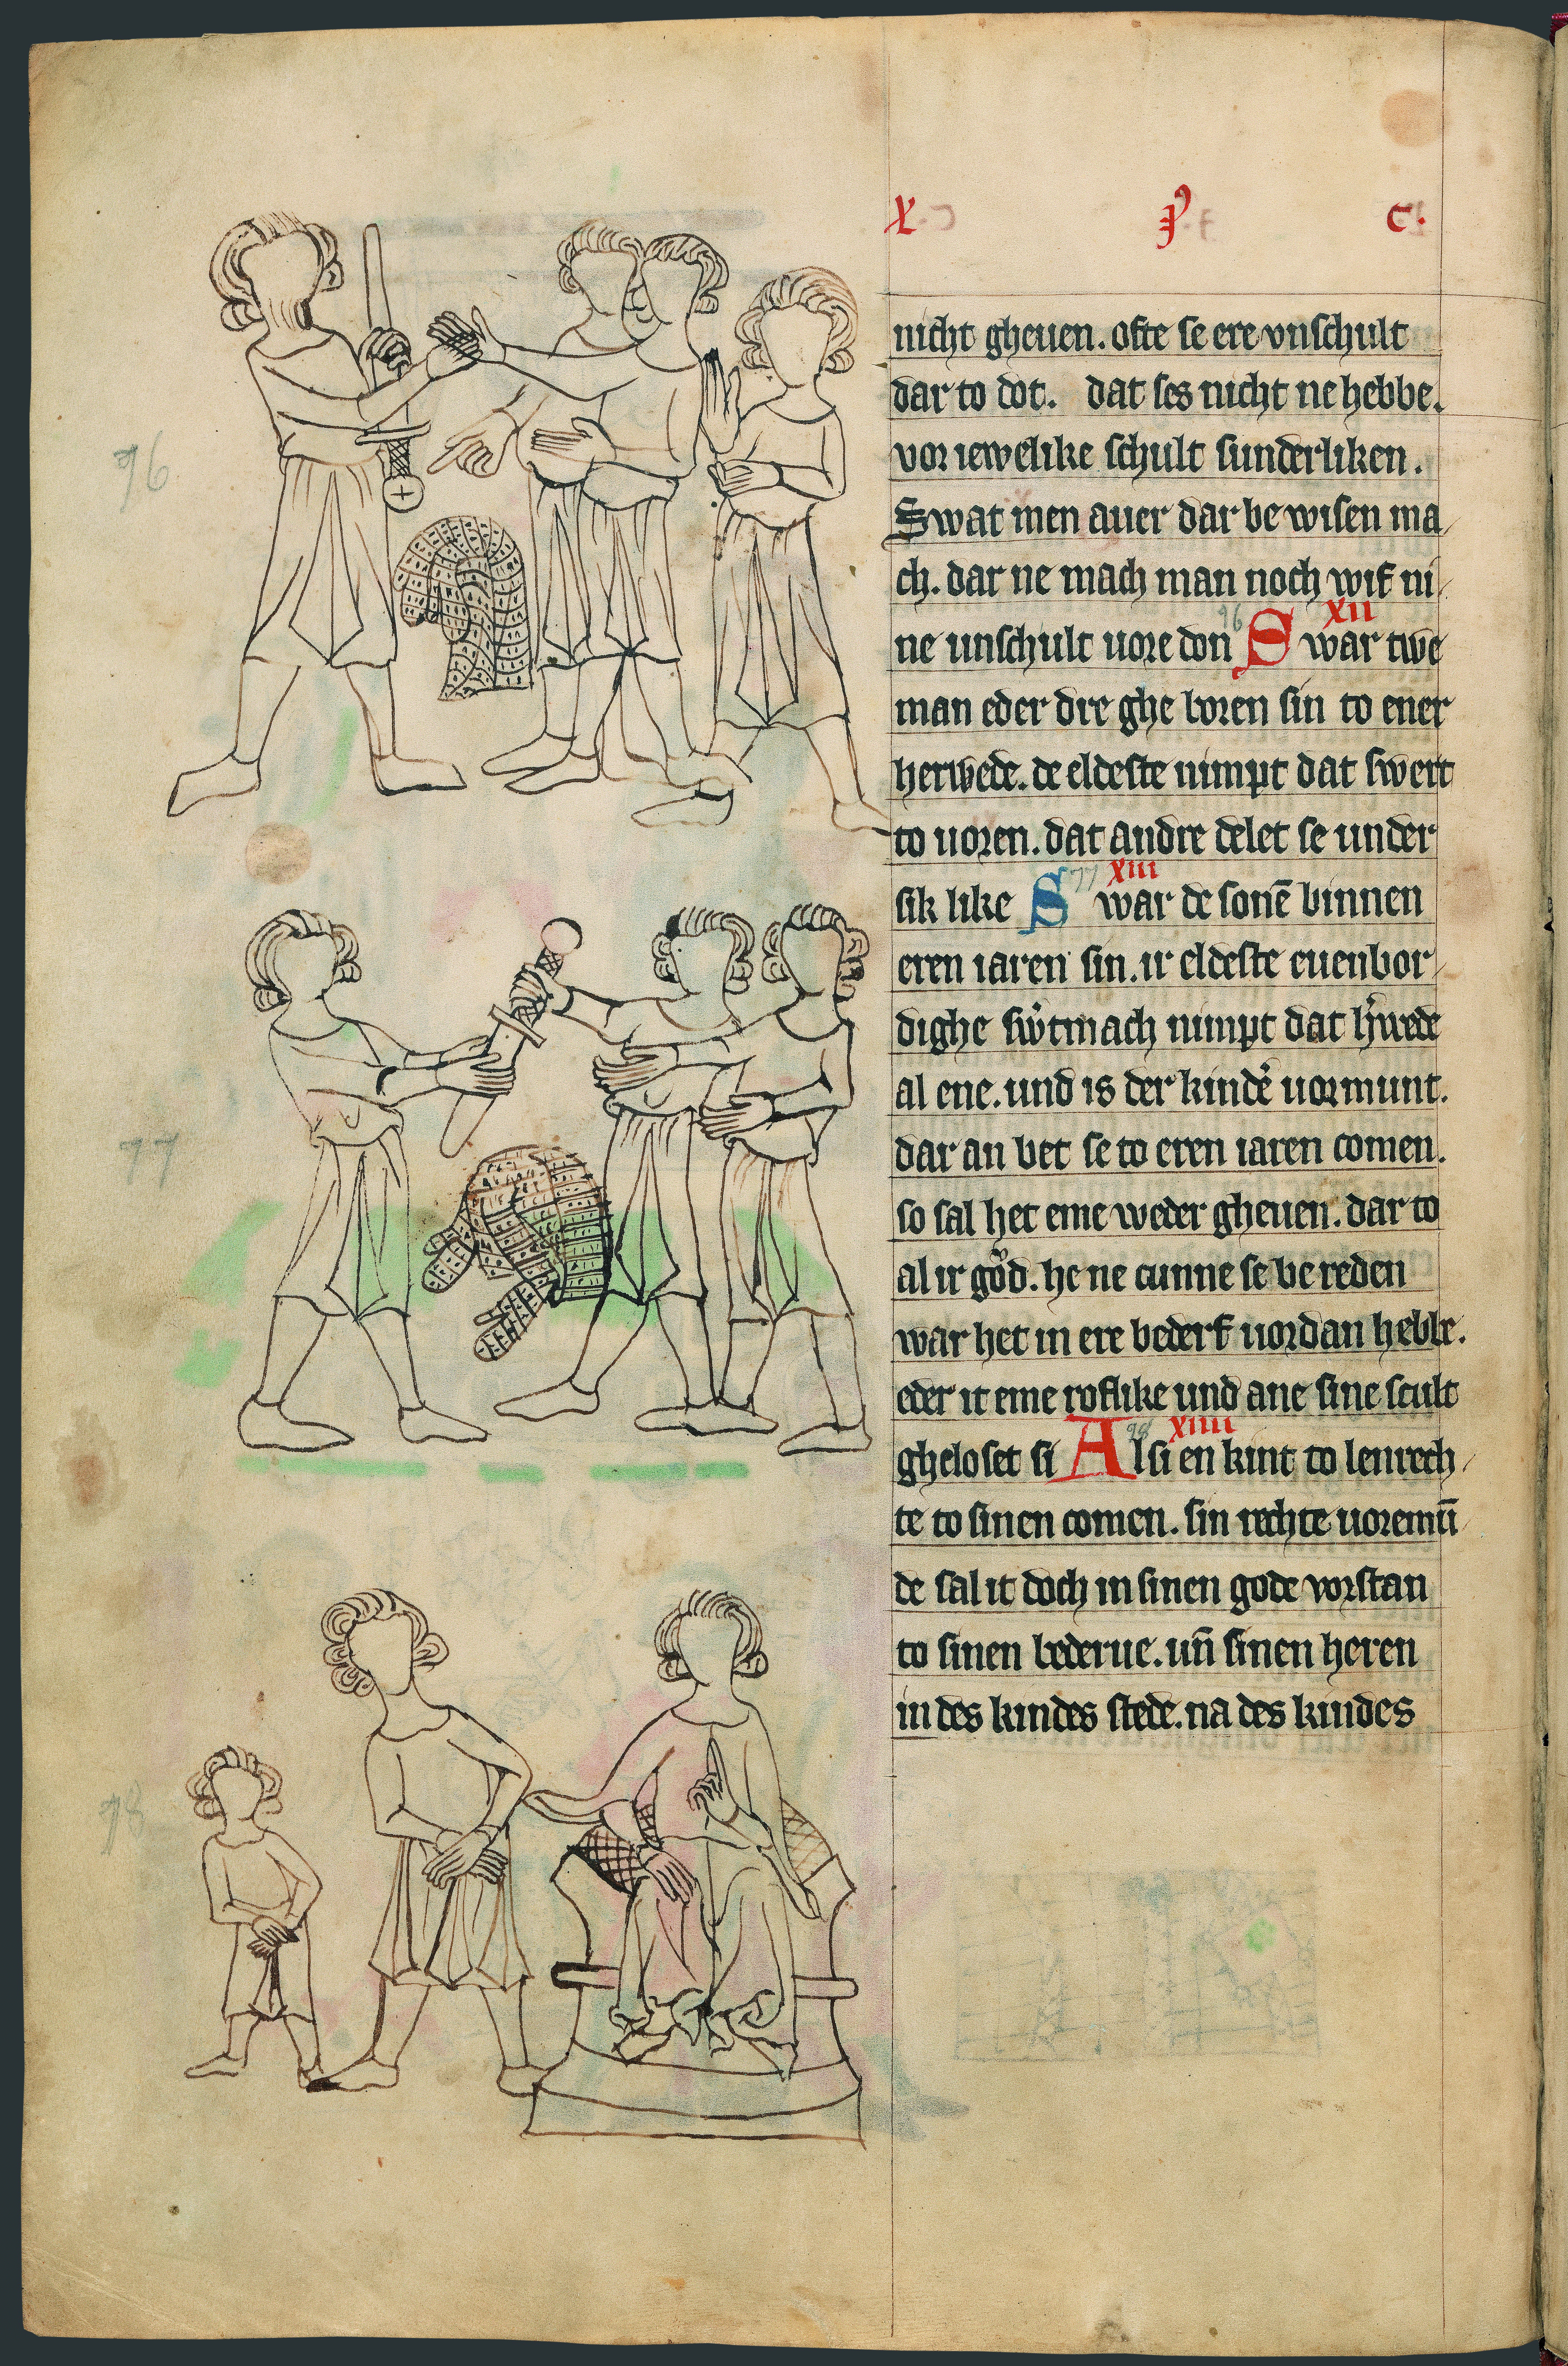 X P c.
nicht gheuen. ofte se ere vnschult
dar to dot. dat ses nicht ne hebbe.
vor iewelike schult sunderliken.
Swat men auer dar be wisen ma
ch. dar ne mach man noch wif ni
ne unschult uore don 76 XII Swar twe
man eder dre ghe boren sin to ener
herwede. de eldeste nimpt dat swert
to uoren. dat andre delet se under
sik like 77 XIII Swar de sonē binnen
eren iaren sin. ir eldeste euenbor
dighe sw̓tmach nimpt dat h̓wede
al ene. und is der kindē uormunt.
dar an bet se to eren iaren comen.
so sal het eme weder gheuen. dar to
al ir god. he ne cunne se be reden
war het in ere bederf uordan hebbe.
eder it eme roflike und ane sine scult
gheloset si 78 XIIII Al si en kint to lenrech
te to sinen comen. sin rechte uoremū
de sal it doch in sinen gode vorstan
to sinen bederue. un̄ sinen heren
in des kindes stede. na des kindes
76
77
78